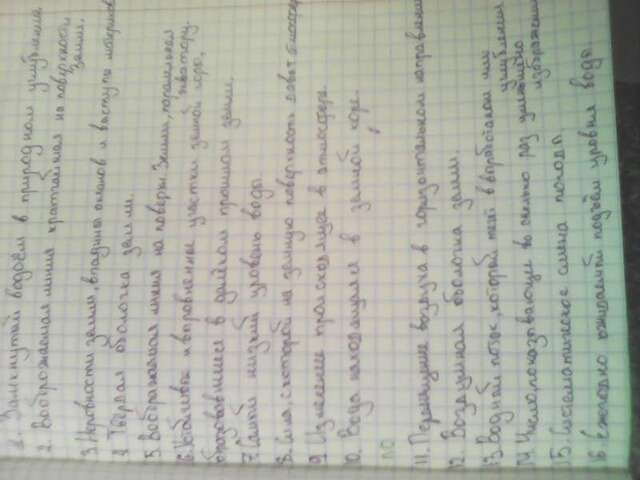 1. Замкнутый водоём в природном углублении
2. Воображаемая линия кратчайшая на поверхности земли.
3. Неровности земли, впадины океанов и выступы материков
4. Твёрдая оболочка земли.
5. Воображаемая линия на поверх. Земли, паралельная экватору.
6. и выровненные участки земной коры,
образовавшиеся в далёком прошлом земли.
7. Самый низкий уровень воды.
8. Сила, с которой на земную поверхность давит
9. Изменение происходящие в атмосфере.
10. Вода находящаяся в земной коре.
11. Перемещение воздуха в горизонтальном направлении
12. Воздушная оболочка земли.
13. Водный поток, который течёт в выработанном им углублении
14. Число показывающие во сколько раз уменьшено изображение
15. Систематическое смена погоды.
16. Ежегодно ожидаемый подъём уровня воды.